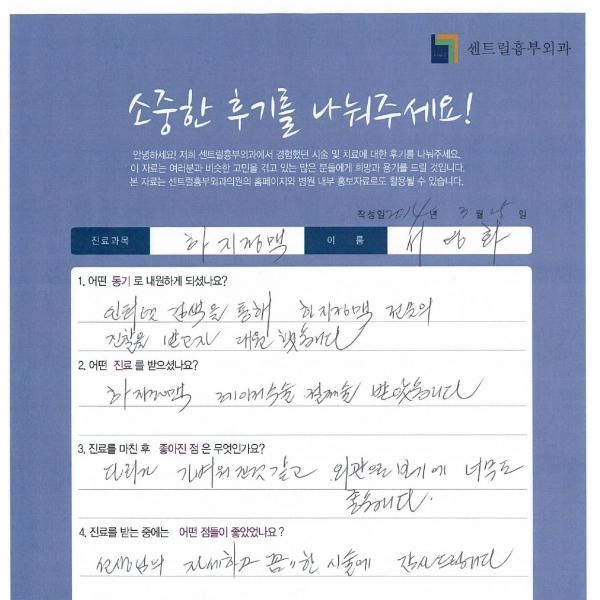 센트럴흉부외과
소중한 후기를 나눠주세요!
안녕하세요! 저희 센트럴흉부외과에서 경험했던 시술 및 치료에 대한 후기를 나눠주세요.
이 자료는 여러분과 비슷한 고민을 겪고 있는 많은 분들에게 희망과 용기를 드릴 것입니다.
본 자료는 센트럴흉부외과의원의 홈페이지와 병원 내부 홍보자료로도 활용될 수 있습니다.
작성일 2014년 3월 25일
진료과목 하지정맥 이 름 서영화
1. 어떤 동기 로 내원하게 되셨나요?
인터넷 검색을 통해 하지정맥 전문의
진찰을 받고자 내원 했습니다
2. 어떤 진료 를 받으셨나요?
하지정맥 레이저수술 절제술 받았습니다
3. 진료를 마친 후 좋아진 점 은 무엇인가요?
다리가 가벼워진것 같고 외관으로 보기에 너무도
좋습니다.
4. 진료를 받는 중에는 어떤 점들이 좋았었나요?
선생님의 자세하고 꼼꼼한 시술에 감사드립니다